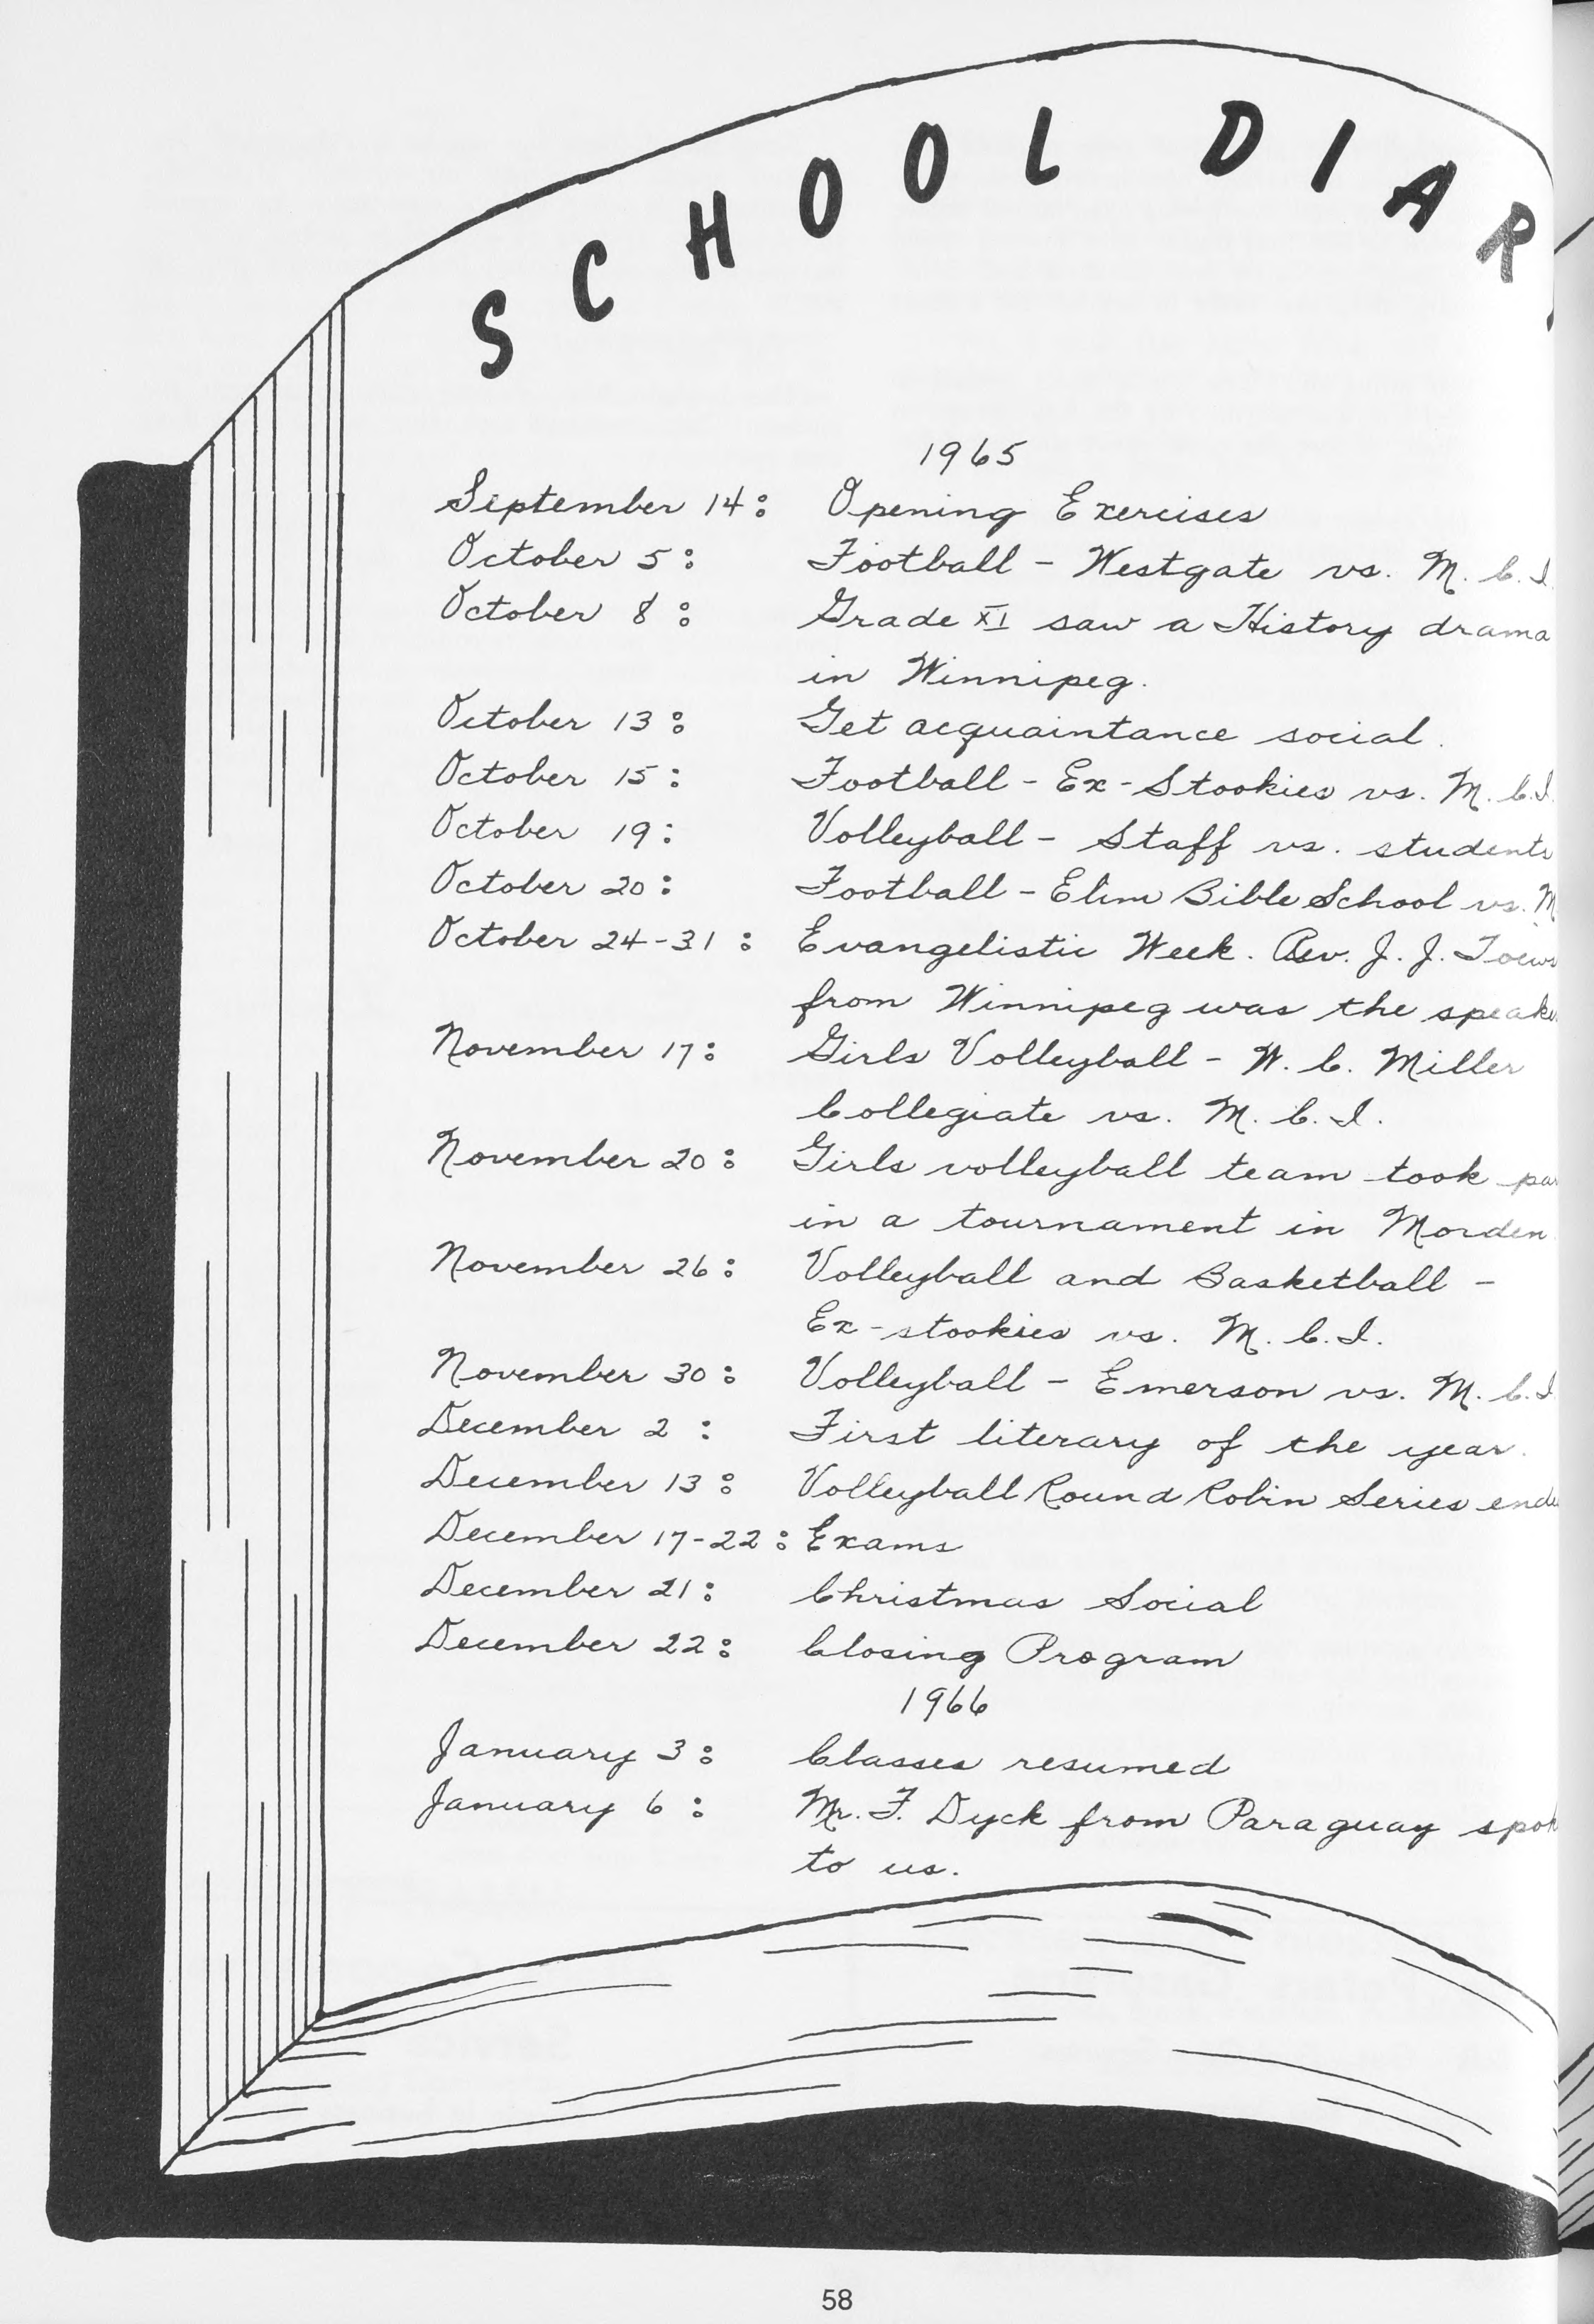 SCHOOL DIAR
1965
September 14: Opening Exercises
October 5: Football - Westgate vs. M. C. I.
October 8: Grade XI saw a History drama
in Winnipeg.
October 13: Get acquaintance social.
October 15: Football - Ex-Stookies vs. M. C. I.
October 19: Volleyball - Staff vs. students
October 20: Football - Elim Bible School vs. M
October 24-31: Evangelistic Week. Rev. J. J. Toews
from Winnipeg was the speake
November 17: Girls Volleyball - W. C. Miller
Collegiate vs. M. C. I.
November 20: Girls volleyball team took par
in a tournament in Morden
November 26: Volleyball and Basketball -
Ex-stookies vs. M. C. I.
November 30: Volleyball - Emerson vs. M. C. I
December 2: First literary of the year.
December 13: Volleyball Round Robin Series ende
December 17-22: Exams
December 21: Christmas Social
December 22: Closing Program
1966
January 3: Classes resumed
January 6: Mr. F. Dyck from Paraguay spok
to us.
58